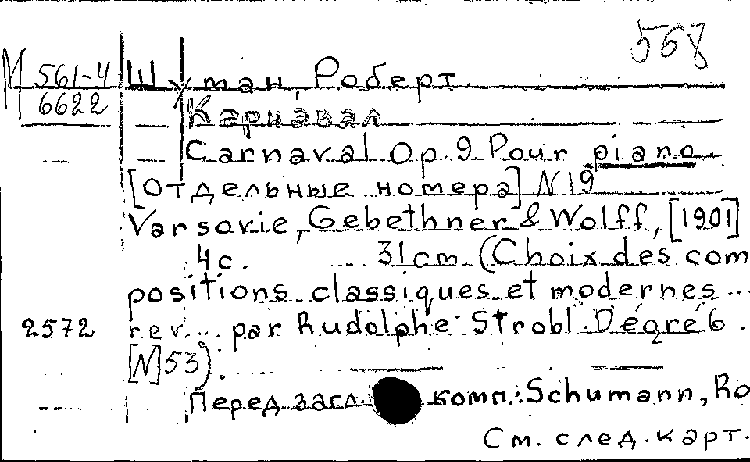 568
М 561-4 Шуман, Роберт
6622 Карнавал
Carnaval Op.9 Pour piano
[Отдельные номера] N19
Varsovie, Gebethner & Wolff, [1901]
4с. 31cm (Choix des com
positions classiques et modernes...
2572 rev... par Rudolphe Strobl. Degré 6.
[N]53).
Перед загл. комп.: Schumann, Ro
См. след. карт.